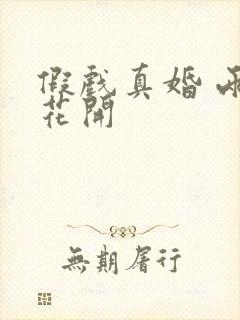 假戲真婚
花開
無期屠行